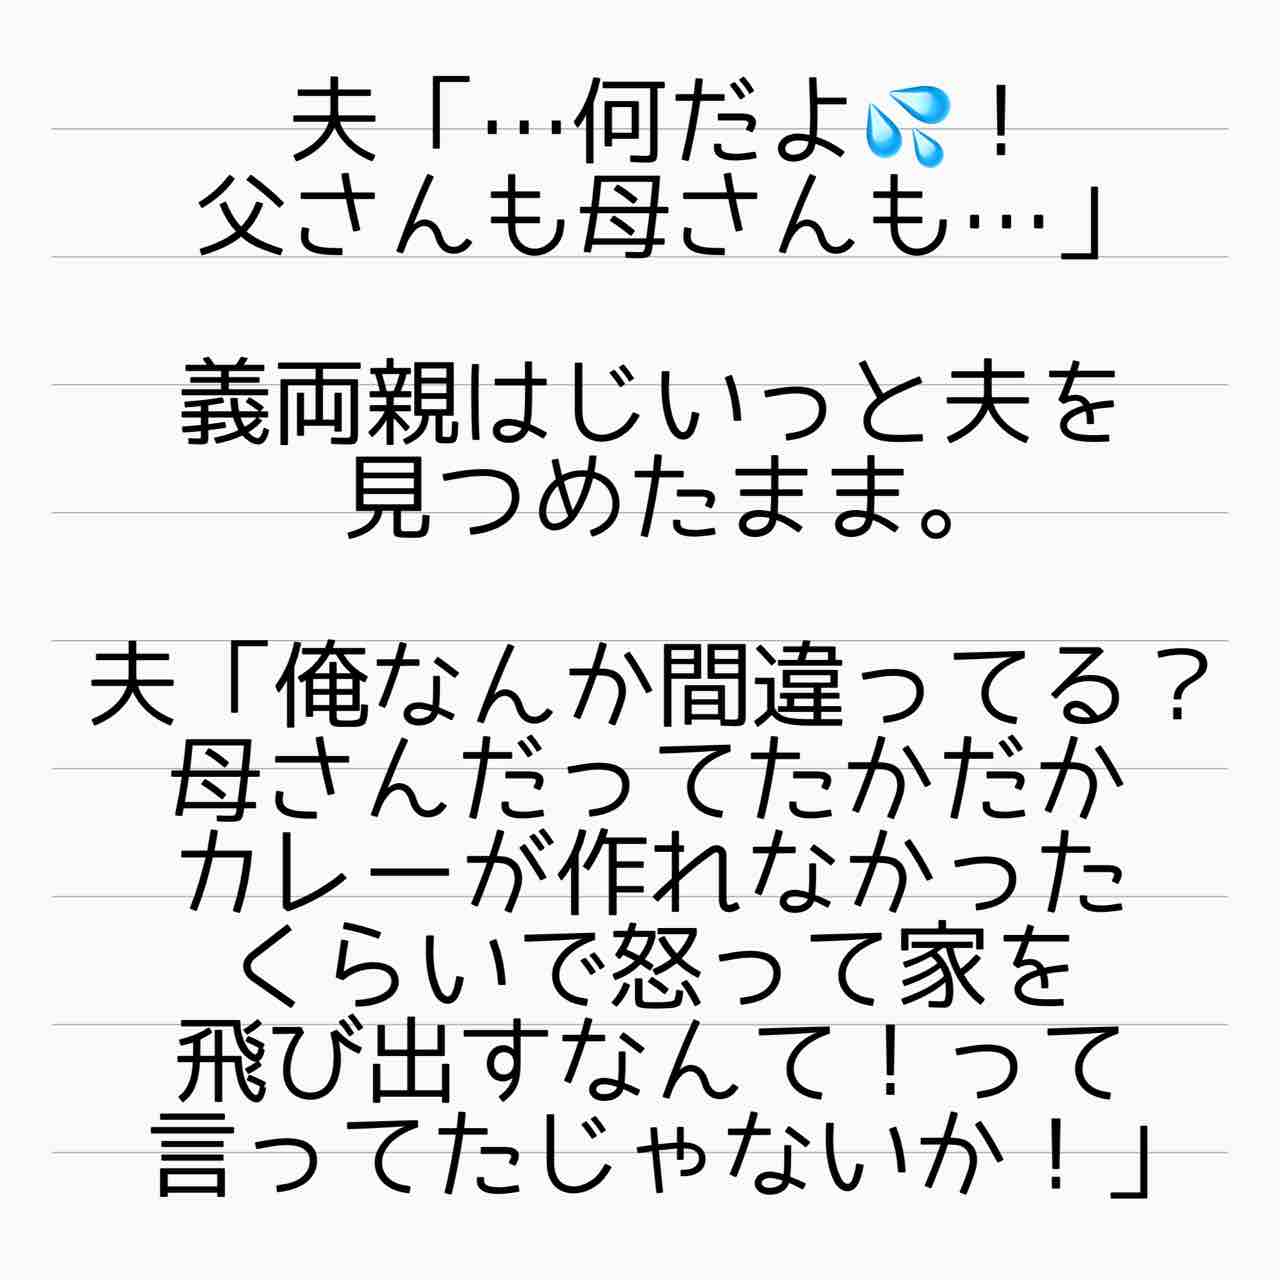 夫「…何だよ💦！
父さんも母さんも…」
義両親はじいっと夫を
見つめたまま。
夫「俺なんか間違ってる？
母さんだってたかだか
カレーが作れなかった
くらいで怒って家を
飛び出すなんて！って
言ってたじゃないか！」